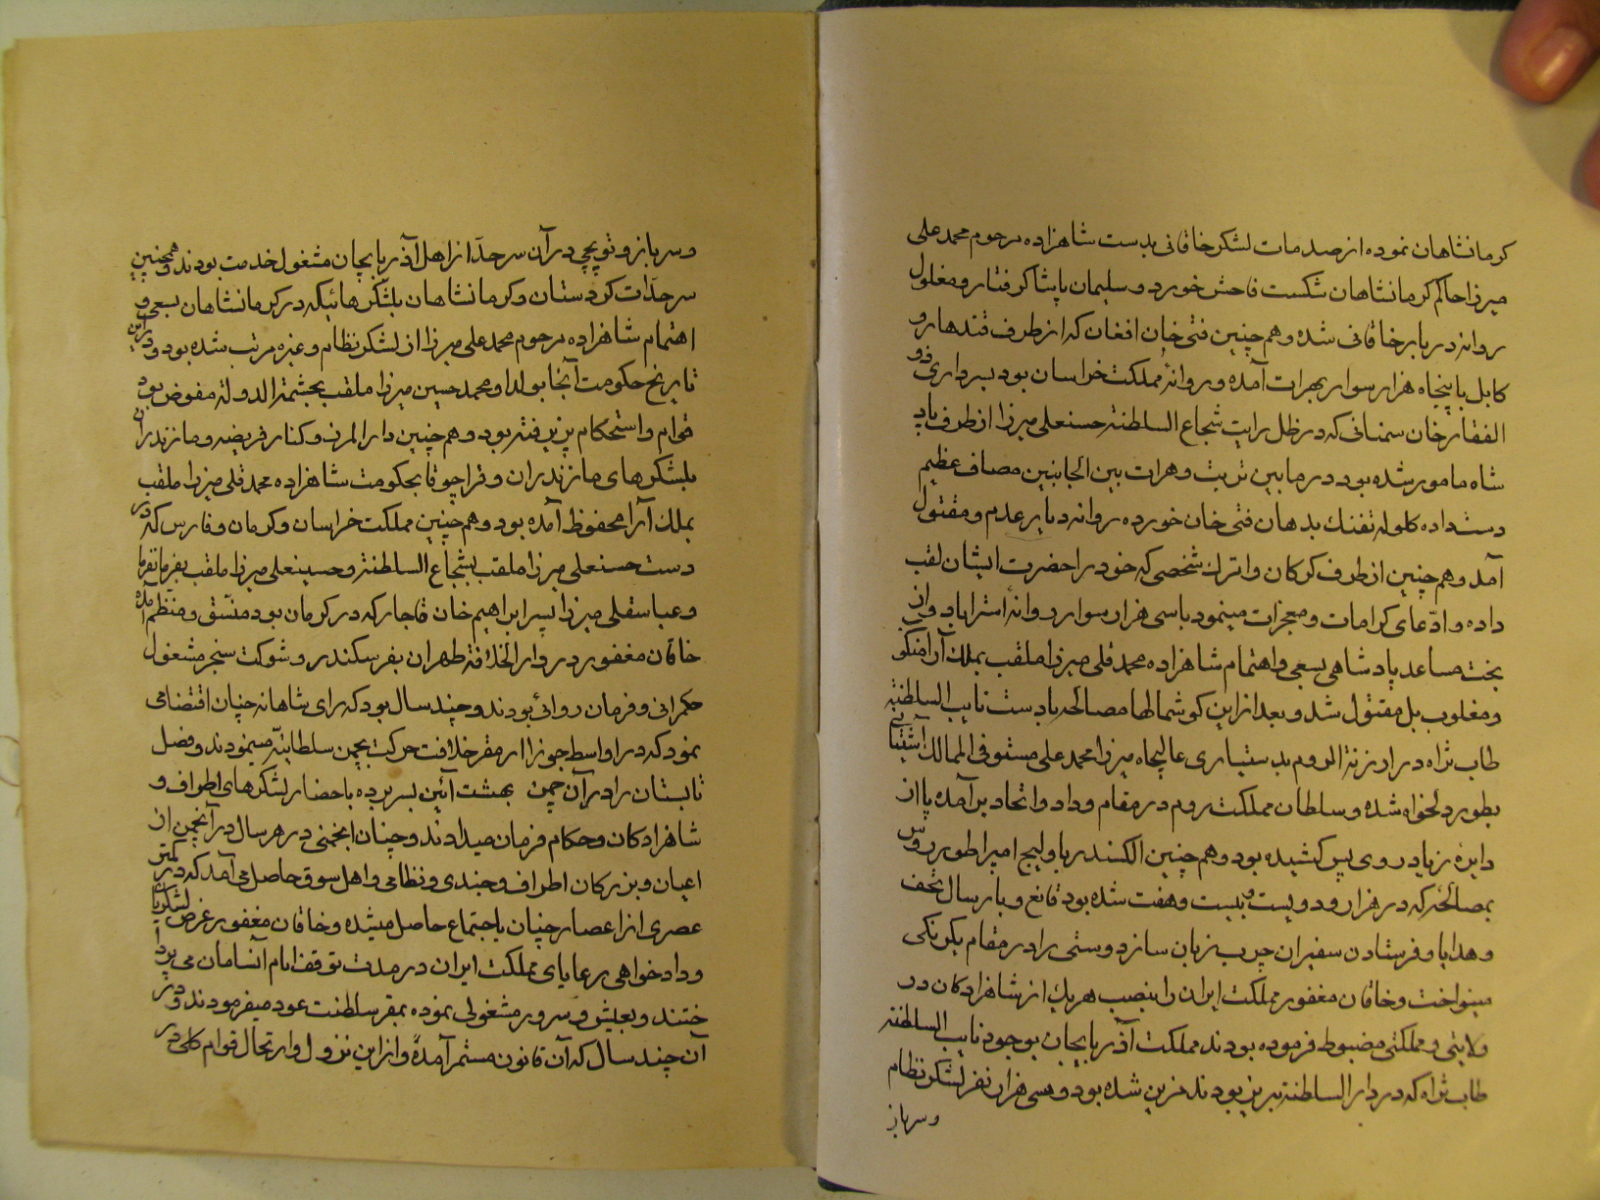 کرمانشاهان نموده از صدمات لشکر خاقانی بدست شاهزاده مرحوم محمد علی
میرزا حاکم کرمانشاهان شکست فاحش خورد و سلیمان پاشا گرفتار و مغلول
روانه دربار خاقانی شده و هم چنین فتی خان افغان که از طرف قندهار و
کابل با پنجاه هزار سوار بهرات آمده و روانهٔ مملکت خراسان بود بسرداری ذو
الفقار خان سمنانی که در ظل رایت شجاع السلطنة حسنعلی میرزا از طرف پاد
شاه مامور شده بود در ما بین تربت و هرات بین الجانبین مصاف عظیم
دست داده کلوله تفنک بدهان فتی خان خورده روانه دیار عدم و مقتول
آمد و هم چنین از طرف کرکان و اتراک شخصی که خود را حضرت ایشان لقب
داده و ادّعای کرامات و معجزات مینمود با سی هزار سوار روانهٔ استراباد و از
بخت مساعد پادشاهی بسعی و اهتمام شاهزاده محمد قلی میرزا ملقب بملک آرا منکو
و مغلوب بل مقتول شد و بعد از این کوشمالها مصالحه با دست نایب السلطنة
طاب ثراه در ارزنة الروم بدستیاری عالیجاه میرزا محمد علی مستوفی الممالک آشتیانی
بطور دلخواه شده و سلطان مملکت روم در مقام وداد و اتحاد بر آمده پا از
دایرهٔ زیاد روی پس کشیده بود و هم چنین الکسندر پاولیج امپراطور روس
بمصالحهٔ که در هزار و دویست و بیست و هفت شده بود قانع و بارسال تحف
و هدایا و فرستادن سفیران چرب زبان ساز دوستی را در مقام یکرنکی
مینواخت و خاقان مغفور مملکت ایران را بنصب هریک از شاهزادکان در
ولایتی و مملکتی مضبوط فرموده بودند مملکت آذربایجان بوجود نایب السلطنة
طاب ثراه که در دار السلطنة تبریز بودند مزین شده بود و سی هزار نفر لشکر نظام
و سرباز
و سرباز و توپچی در آن سرحد از اهل آذربایجان مشغول خدمت بودند و همچنین
سرحدّات کردستان و کرمانشاهان بلشکر هائیکه در کرمانشاهان بسعی و
اهتمام شاهزاده مرحوم محمد علی میرزا از لشکر نظام و غیره مرتب شده بود و در این
تاریخ حکومت آنجا بولد او محمد حسین میرزا ملقب بحشمة الدوله مفوض بود
قوام و استحکام پذیرفته بود و هم چنین دار المرز و کنار فریضه و مازندران
بلشکرهای مازندران و قراچوقا بحکومت شاهزاده محمد قلی میرزا ملقب
بملک آرا محفوظ آمده بود و هم چنین مملکت خراسان و کرمان و فارس که در
دست حسنعلی میرزا ملقب بشجاع السلطنة و حسینعلی میرزا ملقب بفرمانفرما
و عباسقلی میرزا پسر ابراهیم خان قاجار که در کرمان بود منسّق و منظم آمده
خاقان مغفور در دار الخلافة طهران بفر سکندر و شوکت سنجر مشغول
حکمرانی و فرمان روائی بودند و چند سال بود که رای شاهانه چنان اقتضا می
نمود که در اواسط جوزا از مقر خلافت حرکت بچمن سلطانیّه مینمودند و فصل
تابستان را در آن چمن بهشت آئین بسر برده باحضار لشکرهای اطراف و
شاهزادکان و حکام فرمان میدادند و چنان انجمنی در هر سال در آنچمن از
اعیان و بزرکان اطراف و جندی و نظامی و اهل سوق حاصل می آمد که در کمتر
عصری از اعصار چنان اجتماع حاصل میشده و خاقان مغفور بعرض لشکریا
و دادخواهی رعایای مملکت ایران در مدت توقف ایام آنسامان می پردا
ختند و بعیش و سرور مشغولی نموده بمقر سلطنت عود میفرمودند و در
آن چند سال که آن قانون مستمر آمده و از این نزول و ارتحال قوام کلی در